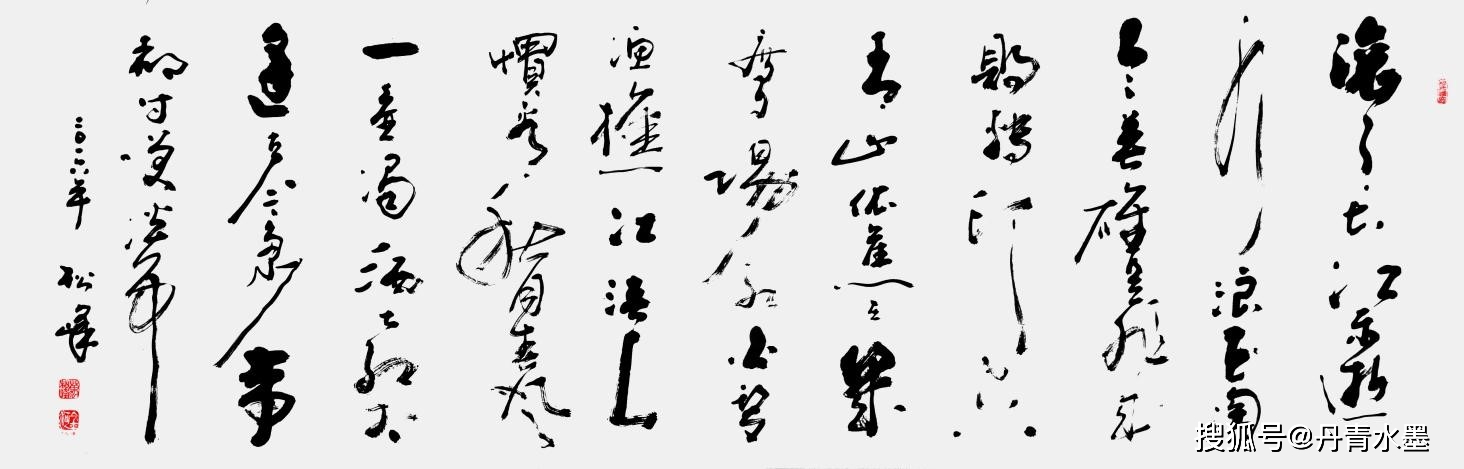 滚滚长江东逝
水浪花淘
尽英雄是非成
敗轉头空
青山依舊在几
度夕陽红白髮
渔樵江渚上
慣看秋月春风
一壶濁酒喜相
逢古今多少事
都付笑谈中
二0一六年 松峰
搜狐号@丹青水墨